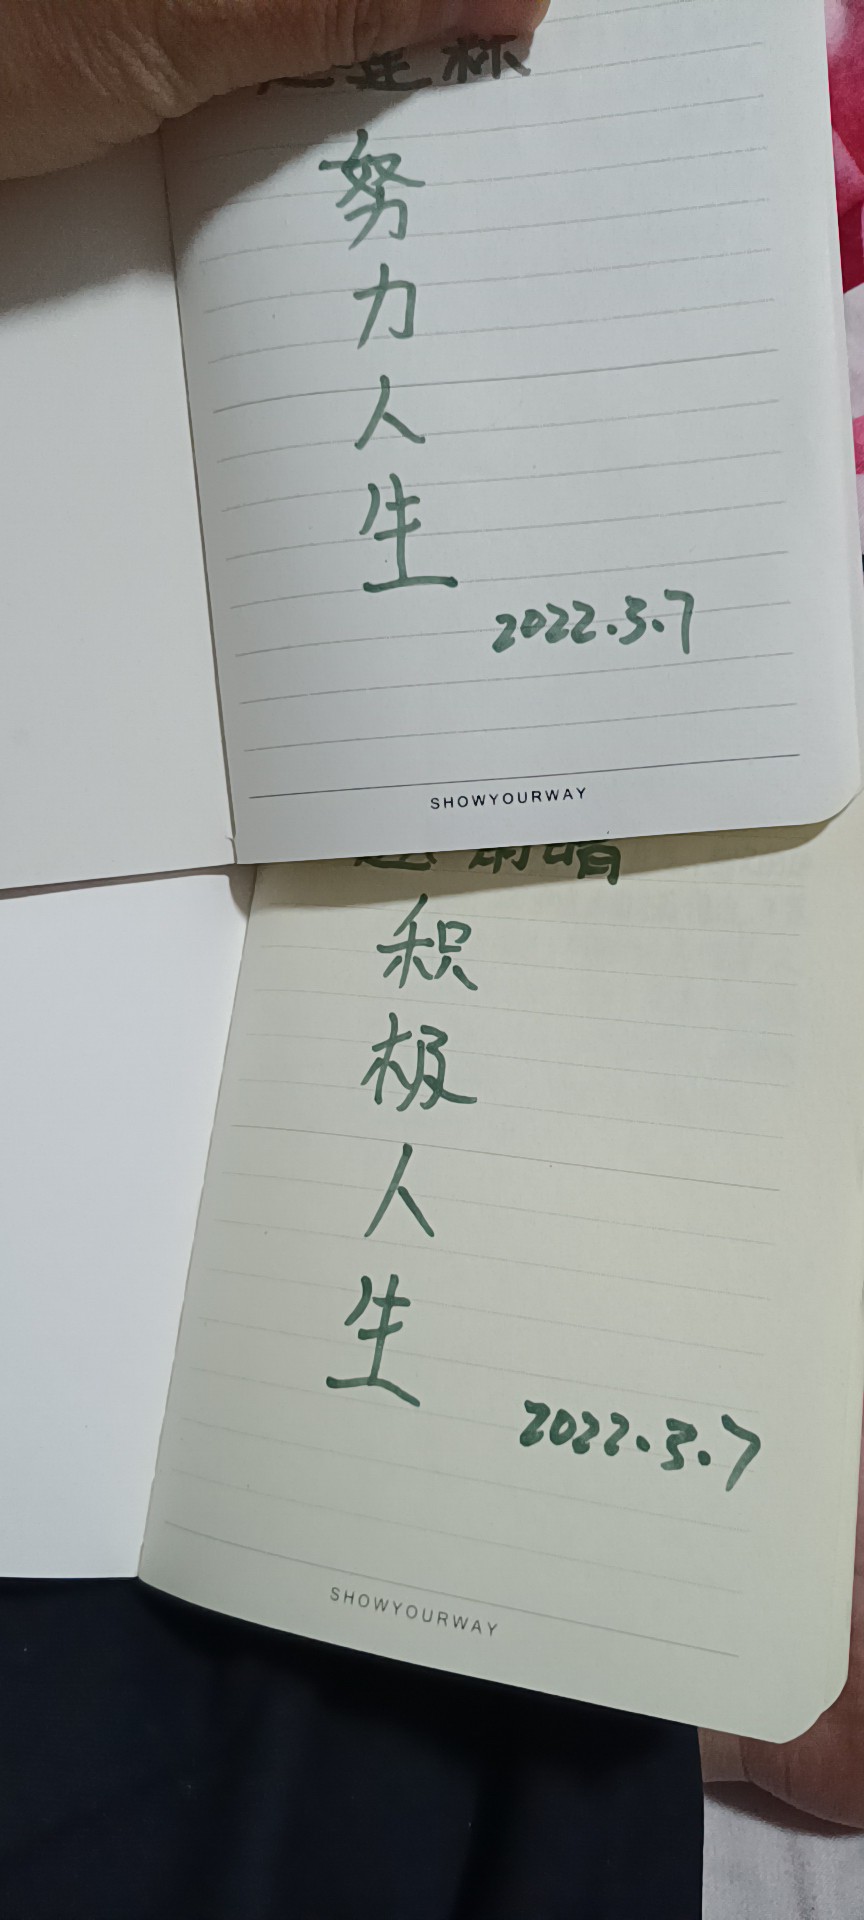 努
力
人
生
2022.3.7
SHOWYOURWAY
积
极
人
生
2022.3.7
SHOWYOURWAY